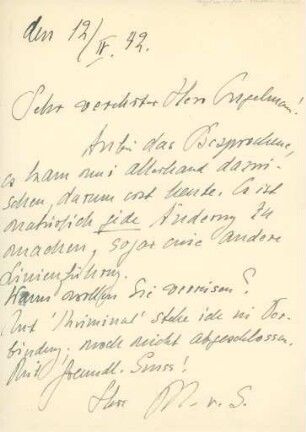 den 12/IV. 42.
Sehr verehrter Herr Engelman!
Anbei das Besprochene,
es kam mir allerhand dazwi-
schen, darum erst heute. Es ist
natürlich jede Änderung zu
machen, sogar eine andere
Linienführung.
Wann wollen Sie verreisen?
Mit 'Kriminal' stehe ich in Ver-
bindung, noch nicht abgeschlossen.
Mit freundl. Gruss!
Ihr M. v. S.